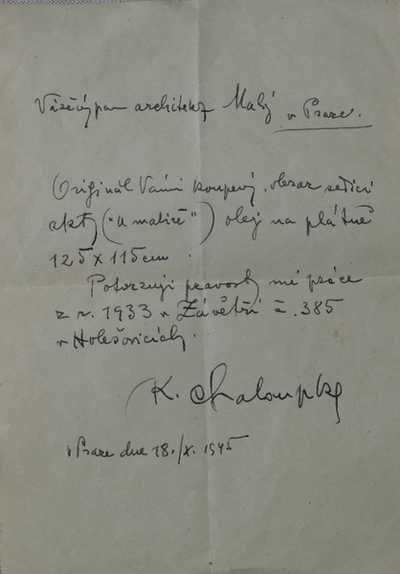 Vážený pan architekt Malý v Praze.
Originál Vámi koupený, obraz sedící
akty ("U malíře") olej na plátně
125 x 115 cm.
Potvrzuji pravost mé práce
z r. 1933 v Závětří č. 385
v Holešovicích.
K. Chaloupka
v Praze dne 18./X. 1945